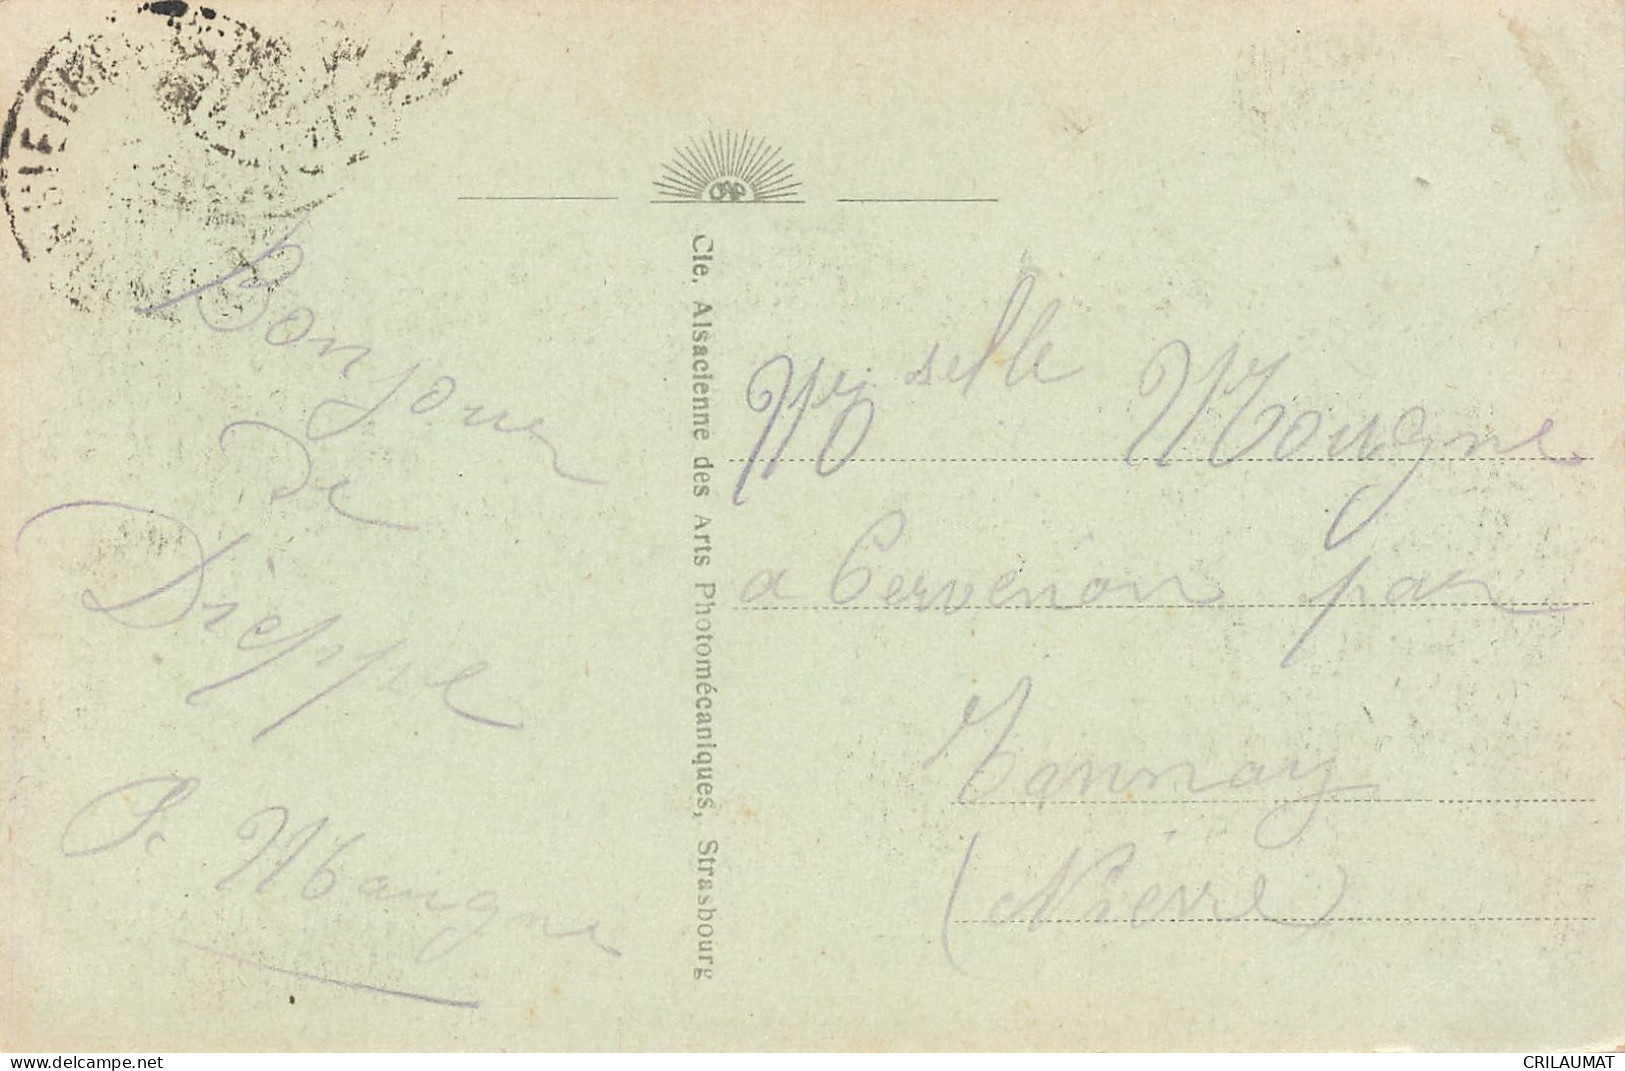 Bonjour
de
Dieppe
Cie. Alsacienne des Arts Photomécaniques, Strasbourg
Melle Mougne
a Cervenon par
Tannay
(Nièvre)
www.delcampe.net
CRILAUMAT